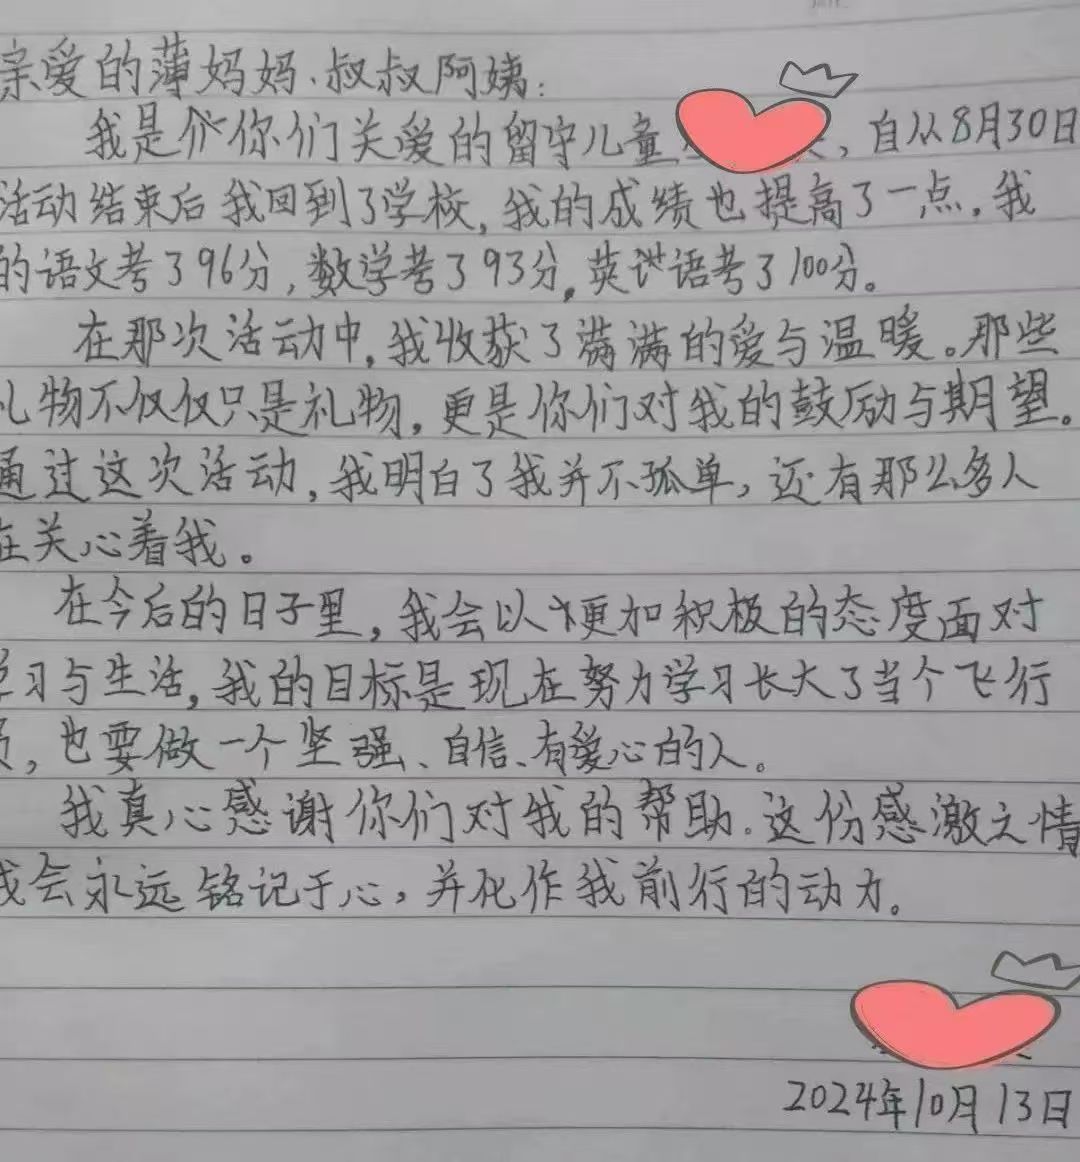 亲爱的薄妈妈、叔叔阿姨:
我是你们关爱的留守儿童 ，自从8月30日
活动结束后我回到了学校，我的成绩也提高了一点，我
的语文考了96分，数学考了93分，英语考了100分。
在那次活动中，我收获了满满的爱与温暖。那些
礼物不仅仅只是礼物，更是你们对我的鼓励与期望。
通过这次活动，我明白了我并不孤单，还有那么多人
在关心着我。
在今后的日子里，我会以更加积极的态度面对
学习与生活，我的目标是现在努力学习长大了当个飞行
员，也要做一个坚强、自信、有爱心的人。
我真心感谢你们对我的帮助。这份感激之情
我会永远铭记于心，并化作我前行的动力。
2024年10月13日